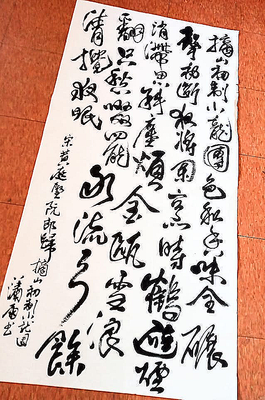 摘山初制小龍團色和香味全碾
聲初斷夜將闌烹時鶴避煙
消滯思解塵煩金甌雪浪
翻只愁啜罷水流天餘
清攪夜眠
宋黃庭堅阮郎歸摘山初制小龍團
書